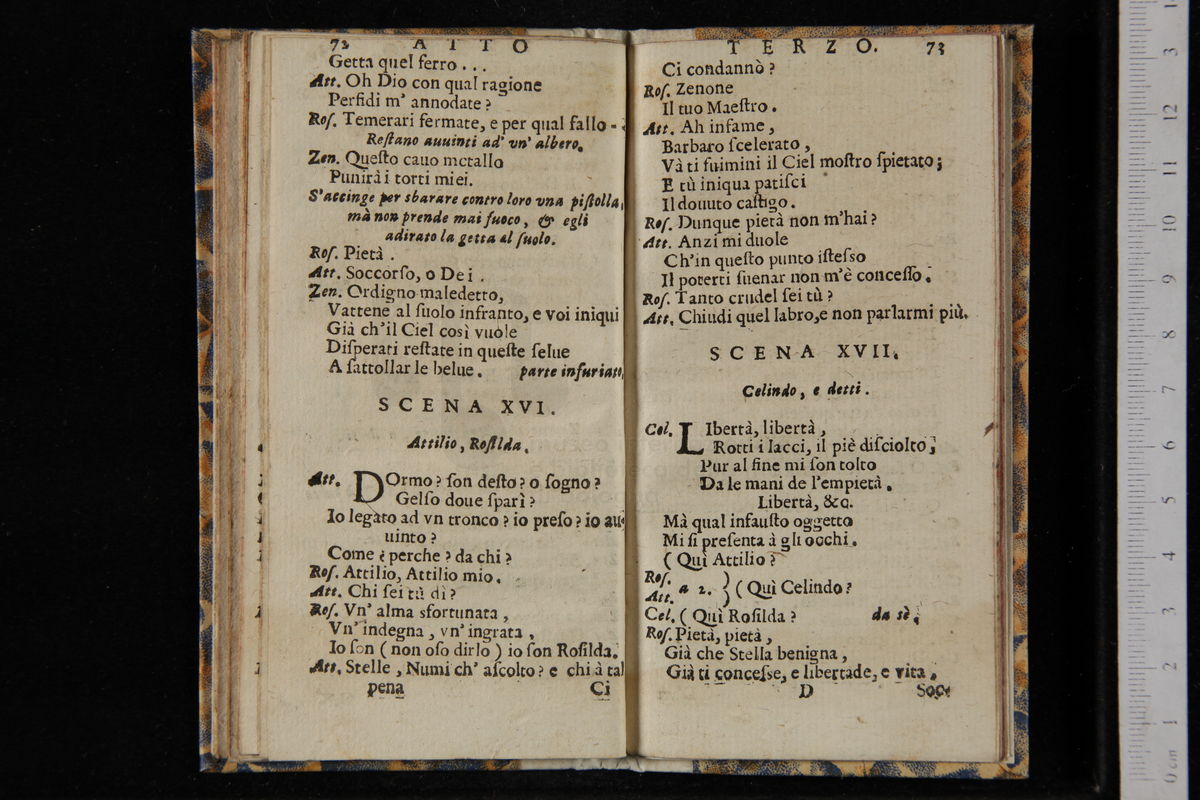 72 ATTO
Getta quel ferro...
Att. Oh Dio con qual ragione
Perfidi m' annodate?
Roſ. Temerari fermate, e per qual fallo -
Reſtano auuinti ad' vn' albero.
Zen. Queſto cauo metallo
Punirà i torti miei.
S'accinge per sbarare contro loro vna piſtolla,
mà non prende mai fuoco, & egli
adirato la getta al ſuolo.
Roſ. Pietà.
Att. Soccorſo, o Dei.
Zen. Ordigno maledetto,
Vattene al ſuolo infranto, e voi iniqui
Già ch'il Ciel così vuole
Diſperati reſtate in queſte ſelue
A ſattollar le belue. parte infuriato.
SCENA XVI.
Attilio, Roſilda.
Att. DOrmo? ſon deſto? o ſogno?
Gelſo doue ſparì?
Io legato ad vn tronco? io preſo? io au-
uinto?
Come? perche? da chi?
Roſ. Attilio, Attilio mio.
Att. Chi ſei tù dì?
Roſ. Vn' alma sfortunata,
Vn' indegna, vn' ingrata,
Io ſon (non oſo dirlo) io ſon Roſilda.
Att. Stelle, Numi ch' aſcolto? e chi à tal
pena Ci
TERZO. 73
Ci condannò?
Roſ. Zenone
Il tuo Maeſtro.
Att. Ah infame,
Barbaro ſcelerato,
Và ti fulmini il Ciel moſtro ſpietato;
E tù iniqua patiſci
Il douuto caſtigo.
Roſ. Dunque pietà non m'hai?
Att. Anzi mi duole
Ch'in queſto punto iſteſso
Il poterti ſuenar non m'è conceſſo.
Roſ. Tanto crudel ſei tù?
Att. Chiudi quel labro, e non parlarmi più.
SCENA XVII.
Celindo, e detti.
Cel. LIbertà, libertà,
Rotti i lacci, il piè diſciolto;
Pur al fine mi ſon tolto
Da le mani de l'empietà.
Libertà, &c.
Mà qual infauſto oggetto
Mi ſi preſenta à gli occhi.
( Quì Attilio?
Roſ.
Att. a 2. } ( Quì Celindo?
Cel. ( Quì Roſilda? da sè.
Roſ. Pietà, pietà,
Già che Stella benigna,
Già ti conceſse, e libertade, e vita.
D Soc-